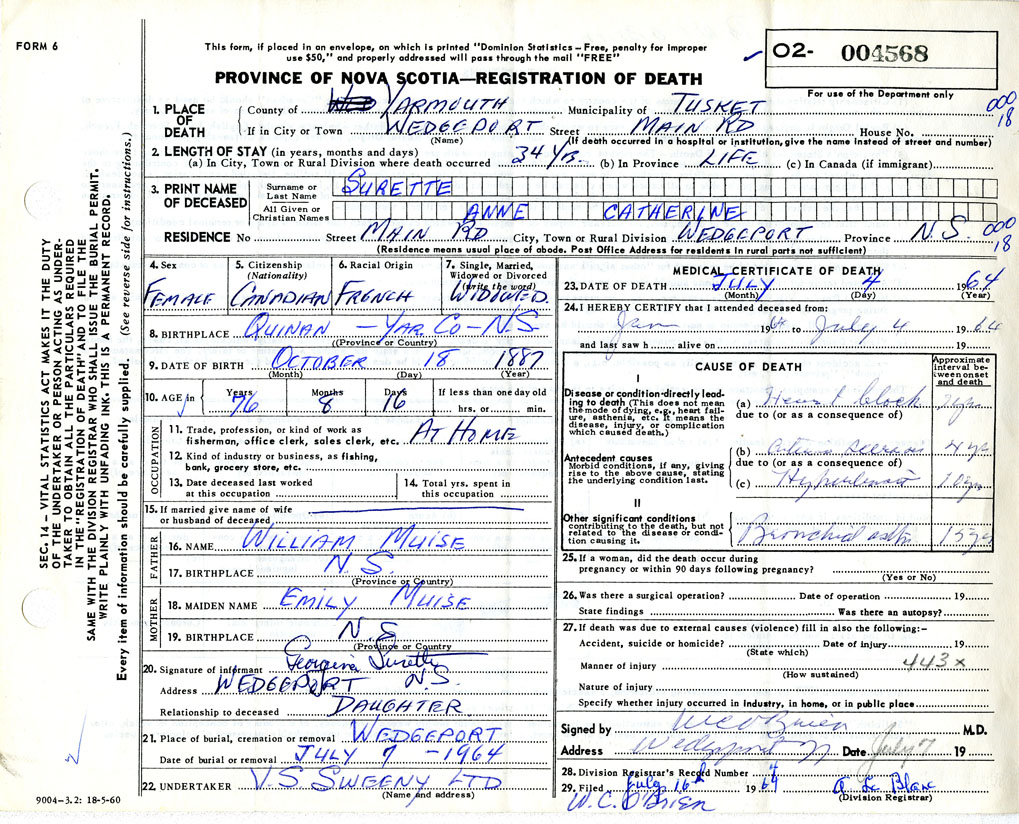 FORM 6
This form, if placed in an envelope, on which is printed "Dominion Statistics – Free, penalty for improper
use $50," and properly addressed will pass through the mail "FREE"
✓ 02- 004568
For use of the Department only
PROVINCE OF NOVA SCOTIA—REGISTRATION OF DEATH
1. PLACE OF DEATH
County of YARMOUTH Municipality of TUSKET 000 18
If in City or Town WEDGEPORT Street MAIN RD House No.
(Name) (If death occurred in a hospital or institution, give the name instead of street and number)
2. LENGTH OF STAY (in years, months and days)
(a) In City, Town or Rural Division where death occurred 34 YR. (b) In Province LIFE (c) In Canada (if immigrant)
3. PRINT NAME OF DECEASED
Surname or Last Name SURETTE
All Given or Christian Names ANNE CATHERINE
RESIDENCE No Street MAIN RD City, Town or Rural Division WEDGEPORT Province N.S. 000 18
(Residence means usual place of abode. Post Office Address for residents in rural parts not sufficient)
4. Sex FEMALE
5. Citizenship (Nationality) CANADIAN
6. Racial Origin FRENCH
7. Single, Married, Widowed or Divorced (write the word) WIDOWED.
8. BIRTHPLACE QUINAN – YAR. CO – N.S
(Province or Country)
9. DATE OF BIRTH OCTOBER 18 1887
(Month) (Day) (Year)
10. AGE in Years 76 Months 8 Days 16 If less than one day old
hrs. or min.
OCCUPATION
11. Trade, profession, or kind of work as
fisherman, office clerk, sales clerk, etc. AT HOME
12. Kind of industry or business, as fishing,
bank, grocery store, etc.
13. Date deceased last worked
at this occupation
14. Total yrs. spent in
this occupation
15. If married give name of wife
or husband of deceased
FATHER
16. NAME WILLIAM MUISE
17. BIRTHPLACE N.S.
(Province or Country)
MOTHER
18. MAIDEN NAME EMILY MUISE
19. BIRTHPLACE N.S
(Province or Country)
20. Signature of informant Georgina Surette
Address WEDGEPORT N.S.
Relationship to deceased DAUGHTER
21. Place of burial, cremation or removal WEDGEPORT
Date of burial or removal JULY 7 – 1964
22. UNDERTAKER V.S SWEENY LTD
(Name and address)
MEDICAL CERTIFICATE OF DEATH
23. DATE OF DEATH JULY 4 1964
(Month) (Day) (Year)
24. I HEREBY CERTIFY that I attended deceased from:
Jan 1964 to July 4 1964
and last saw h alive on 19
CAUSE OF DEATH
Approximate interval between onset and death
I
Disease or condition directly leading to death (This does not mean the mode of dying, e.g., heart failure, asthenia, etc. It means the disease, injury, or complication which caused death.)
(a) Heart block
due to (or as a consequence of)
Antecedent causes
Morbid conditions, if any, giving rise to the above cause, stating the underlying condition last.
(b) 4 yrs
due to (or as a consequence of)
(c) 10 yrs
II
Other significant conditions
contributing to the death, but not related to the disease or condition causing it.
Bronchial 15 yrs
25. If a woman, did the death occur during
pregnancy or within 90 days following pregnancy?
(Yes or No)
26. Was there a surgical operation? Date of operation 19
State findings Was there an autopsy?
27. If death was due to external causes (violence) fill in also the following:–
Accident, suicide or homicide? Date of injury 19
(State which)
Manner of injury 443x
(How sustained)
Nature of injury
Specify whether injury occurred in industry, in home, or in public place
Signed by W C O'Brien M.D.
Address Wedgeport Date July 7 19
28. Division Registrar's Record Number 4
29. Filed July 16th 1964 A Le Blanc
(Division Registrar)
W.C. O'BRIEN
SEC. 14 – VITAL STATISTICS ACT MAKES IT THE DUTY
OF THE UNDERTAKER OR PERSON ACTING AS UNDER-
TAKER TO OBTAIN ALL THE PARTICULARS REQUIRED
IN THE "REGISTRATION OF DEATH" AND TO FILE THE
SAME WITH THE DIVISION REGISTRAR WHO SHALL ISSUE THE BURIAL PERMIT.
WRITE PLAINLY WITH UNFADING INK. THIS IS A PERMANENT RECORD.
Every item of information should be carefully supplied. (See reverse side for instructions.)
9004–3.2: 18-5-60